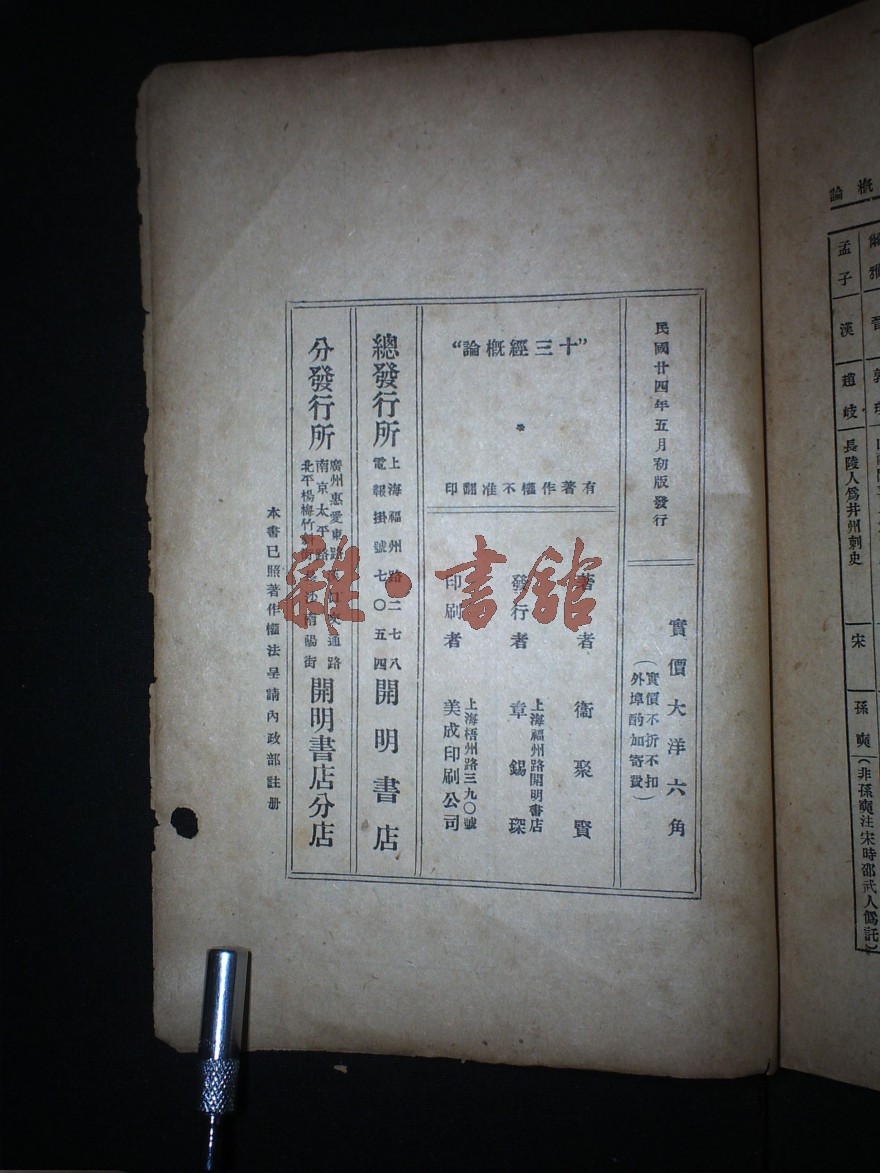 民國廿四年五月初版發行
實價大洋六角
（實價不折不扣
外埠酌加寄費）
“十三經概論”
有著作權不准翻印
著者 衞聚賢
發行者 章錫琛
上海福州路開明書店
印刷者 美成印刷公司
上海梧州路三九〇號
總發行所
上海福州路二七八
電報掛號七〇五四
開明書店
分發行所
廣州惠愛東路 交通路
南京太平路
北平楊梅竹 長沙南陽街
開明書店分店
本書已照著作權法呈請內政部註册
雜·書館
概論
孟子
漢
趙岐
長陵人爲幷州刺史
宋
孫奭
（非孫奭注宋時邵武人僞託）